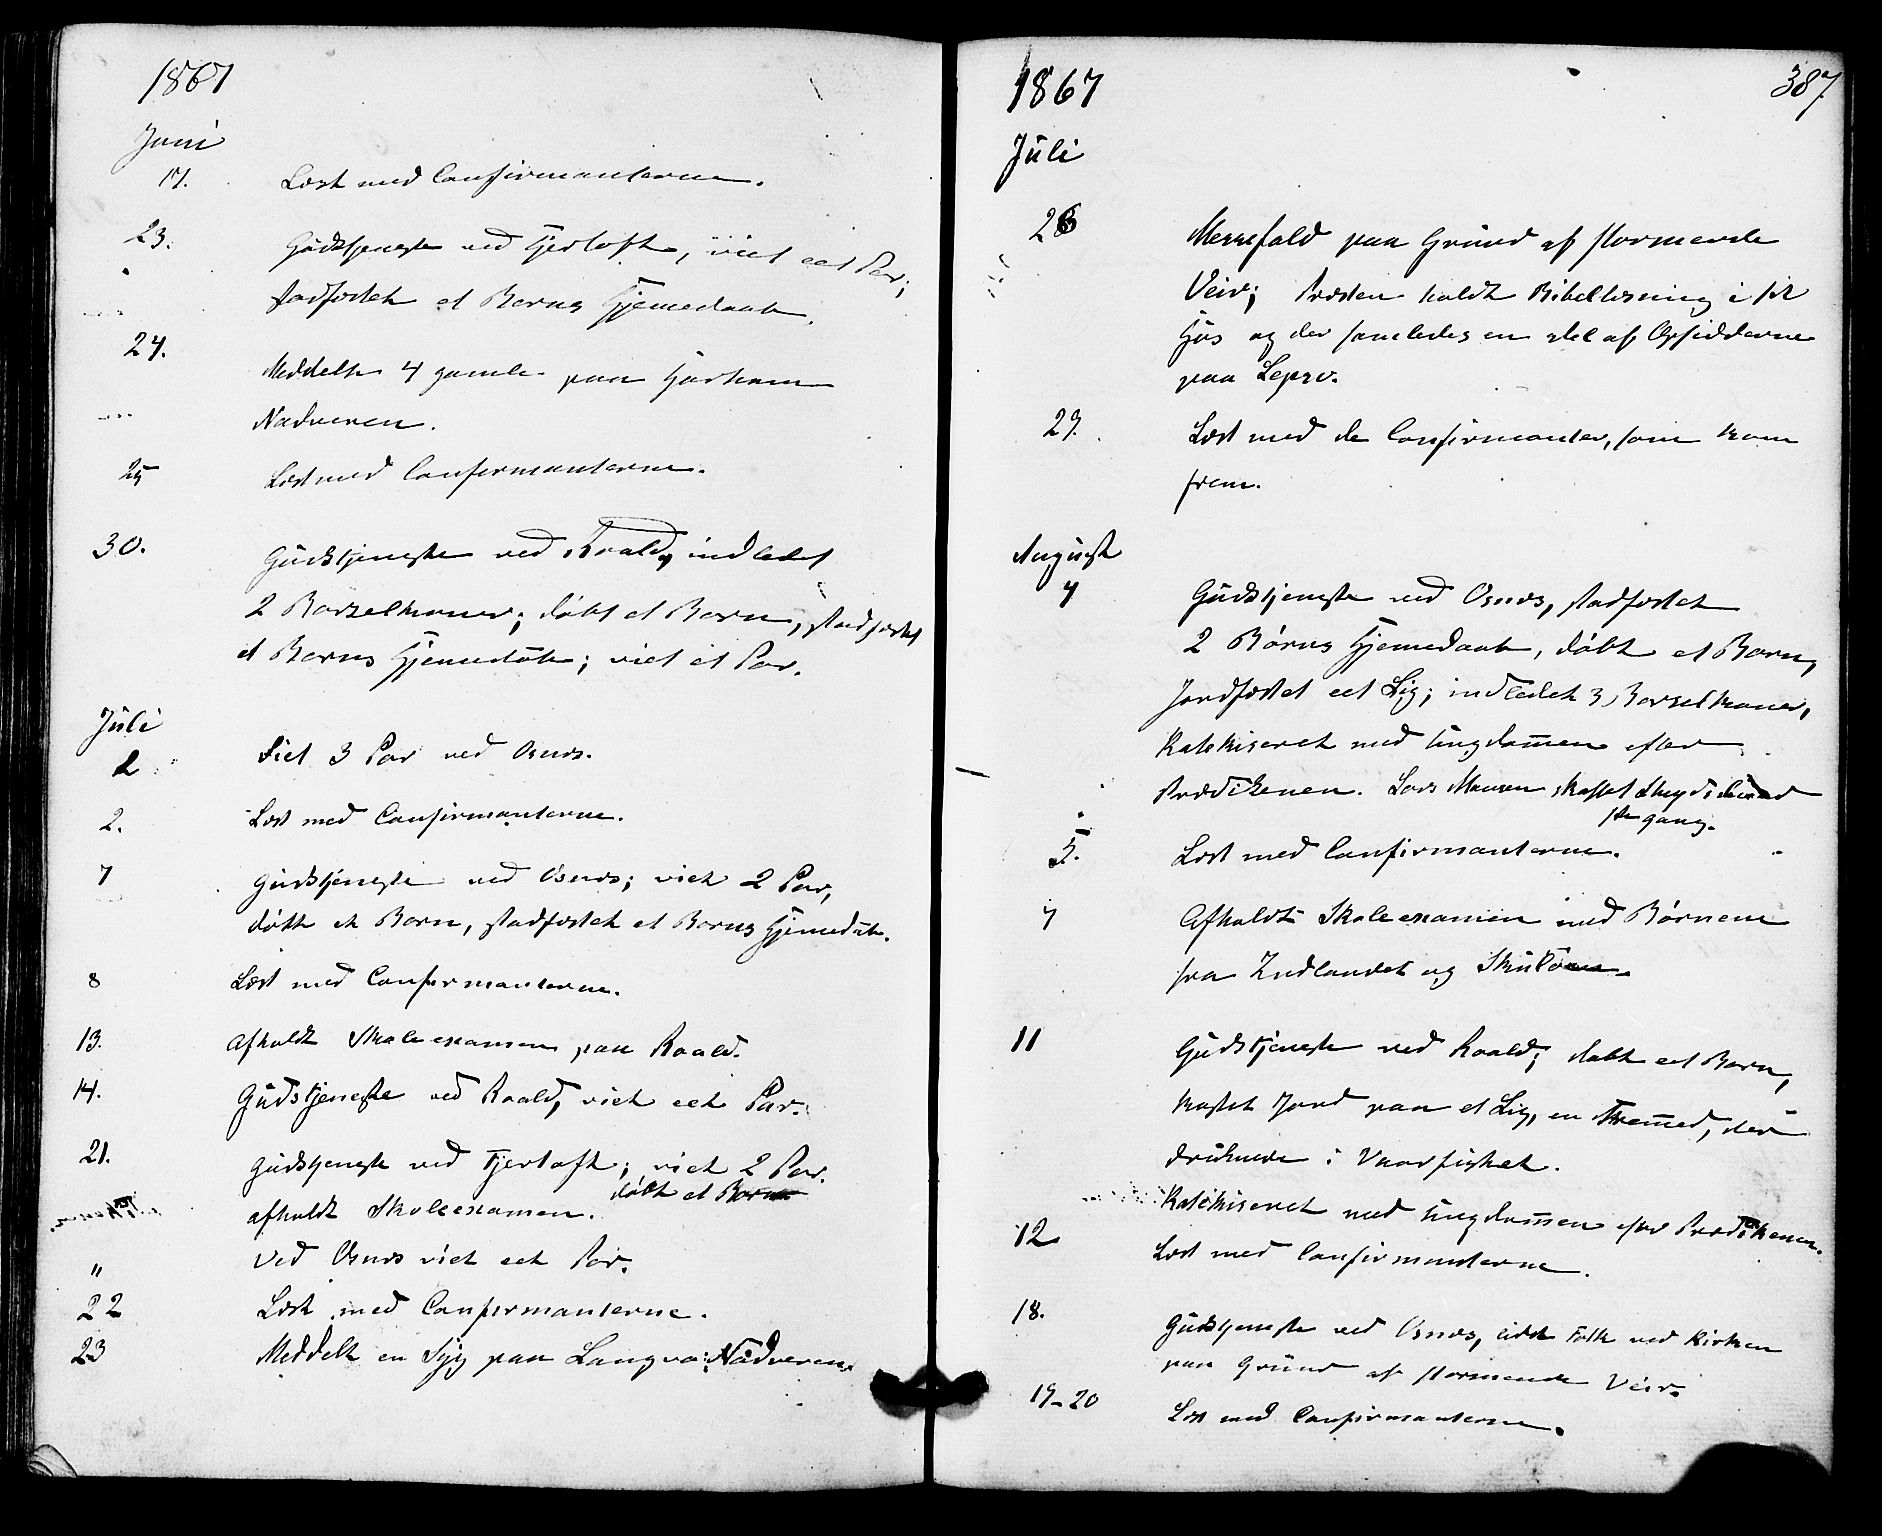 1867
Juni
17. Læst med Confirmanterne.
23. Gudstjeneste ved Fjertoft, viet eet Par;
stadfæstet et Barns Hjemmedaab.
24. Meddelt 4 gamle paa Harham
Nadveren.
25 Læst med Confirmanterne.
30. Gudstjeneste ved Roald, indledet
2 Barselkoner; døbt et Barn, stadfæstet
et Barns Hjemmedåb; viet et Par.
Juli
Viet 3 Par ved Osnes.
2. Læst med Confirmanterne.
7 Gudstjeneste ved Osnes; viet 2 Par,
døbt et Barn, stadfæstet et Barns Hjemmedåb.
8 Læst med Confirmanterne.
13. Afholdt Skoleexamen paa Roald.
14. Gudstjeneste ved Roald, viet eet Par.
21. Gudstjeneste ved Fjertoft; viet 2 Par.
døbt et Barn
afholdt Skoleexamen.
" Ved Osnes viet eet Par.
22 Læst med Confirmanterne.
23 Meddelt en Syg paa Langva Nadveren.
1867 387.
Juli
28 Messefald paa Grund af stormende
Veir; Præsten holdt Bibellæsning i sit
Huus og der samledes en del af Opsidderne
paa Lepsø.
29. Læst med de Confirmanter, som kom
frem.
August
4 Gudstjeneste ved Osnes, stadfæstet
2 Børns Hjemmedaab, døbt et Barn,
Jordfæstet eet Lig; indledet 3 Barselkoner,
Katekiseret med Ungdom̅en efter
Prædikenen. Lars
1ste gang.
5. Læst med Confirmanterne.
7 Afholdt Skoleexamen med Børnene
fra Indlandet og
11 Gudstjeneste ved Roald; døbt eet Barn,
kastet Jord paa et Lig, en Frem̅ed, der
druknede i Vaarfisket.
Katekiseret med Ungdom̅en efter Prædikenen.
12 Læst med Confirmanterne.
18. Gudstjeneste ved Osnes, lidet Folk ved Kirken
paa Grund af stormende Veir.
19-20 Læst med Confirmanterne.